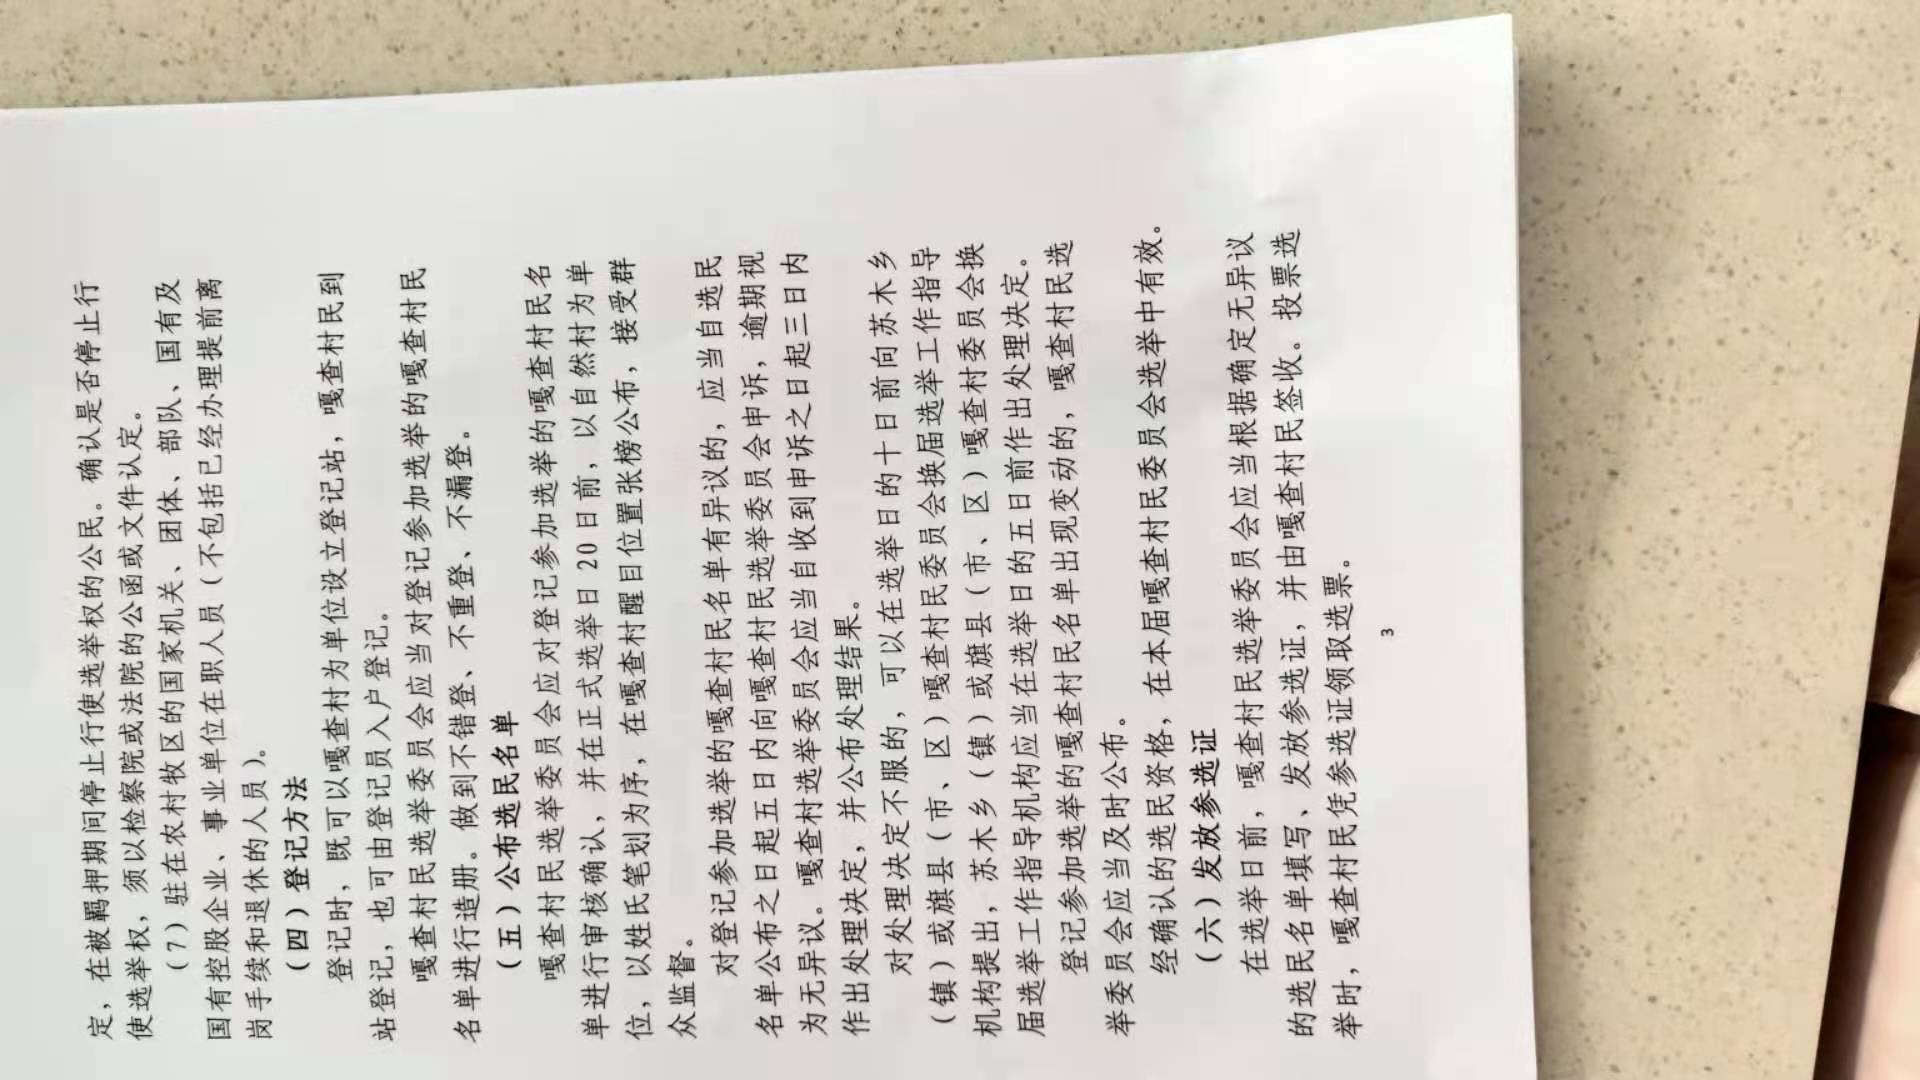 定，在被羁押期间停止行使选举权的公民。确认是否停止行
使选举权，须以检察院或法院的公函或文件认定。
（7）驻在农村牧区的国家机关、团体、部队、国有及
国有控股企业、事业单位在职人员（不包括已经办理提前离
岗手续和退休的人员）。
（四）登记方法
登记时，既可以嘎查村为单位设立登记站，嘎查村民到
站登记，也可由登记员入户登记。
嘎查村民选举委员会应当对登记参加选举的嘎查村民
名单进行造册。做到不错登、不重登、不漏登。
（五）公布选民名单
嘎查村民选举委员会应对登记参加选举的嘎查村民名
单进行审核确认，并在正式选举日20日前，以自然村为单
位，以姓氏笔划为序，在嘎查村醒目位置张榜公布，接受群
众监督。
对登记参加选举的嘎查村民名单有异议的，应当自选民
名单公布之日起五日内向嘎查村民选举委员会申诉，逾期视
为无异议。嘎查村选举委员会应当自收到申诉之日起三日内
作出处理决定，并公布处理结果。
对处理决定不服的，可以在选举日的十日前向苏木乡
（镇）或旗县（市、区）嘎查村民委员会换届选举工作指导
机构提出，苏木乡（镇）或旗县（市、区）嘎查村委员会换
届选举工作指导机构应当在选举日的五日前作出处理决定。
登记参加选举的嘎查村民名单出现变动的，嘎查村民选
举委员会应当及时公布。
经确认的选民资格，在本届嘎查村民委员会选举中有效。
（六）发放参选证
在选举日前，嘎查村民选举委员会应当根据确定无异议
的选民名单填写、发放参选证，并由嘎查村民签收。投票选
举时，嘎查村民凭参选证领取选票。
3